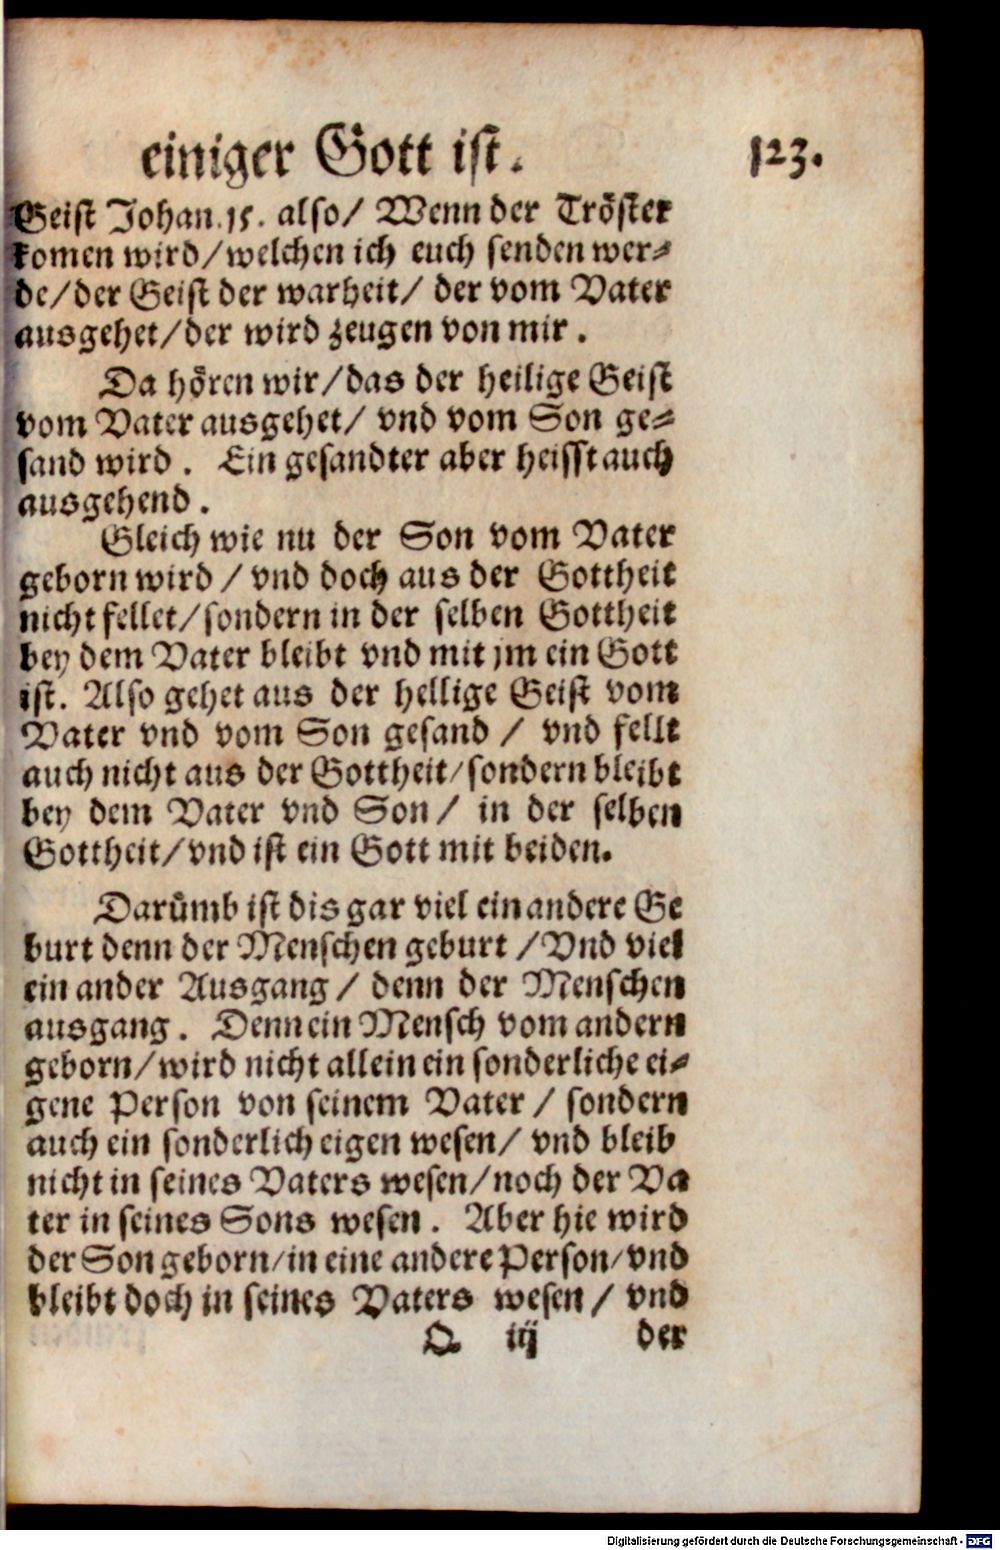 einiger Gott ist. 123.
Geist Johan. 15. also/ Wenn der Tröster
komen wird/welchen ich euch senden wer⸗
de/der Geist der warheit/ der vom Vater
ausgehet/der wird zeugen von mir.
Da hören wir/das der heilige Geist
vom Vater ausgehet/ vnd vom Son ge⸗
sand wird. Ein gesandter aber heisst auch
ausgehend.
Gleich wie nu der Son vom Vater
geborn wird/ vnd doch aus der Gottheit
nicht fellet/sondern in der selben Gottheit
bey dem Vater bleibt vnd mit jm ein Gott
ist. Also gehet aus der hellige Geist vom
Vater vnd vom Son gesand/ vnd fellt
auch nicht aus der Gottheit/sondern bleibt
bey dem Vater vnd Son/ in der selben
Gottheit/vnd ist ein Gott mit beiden.
Darůmb ist dis gar viel ein andere Ge
burt denn der Menschen geburt/Vnd viel
ein ander Ausgang/ denn der Menschen
ausgang. Denn ein Mensch vom andern
geborn/wird nicht allein ein sonderliche ei⸗
gene Person von seinem Vater/ sondern
auch ein sonderlich eigen wesen/ vnd bleib
nicht in seines Vaters wesen/noch der Va
ter in seines Sons wesen. Aber hie wird
der Son geborn/in eine andere Person/vnd
bleibt doch in seines Vaters wesen/ vnd
Q iij der
Digitalisierung gefördert durch die Deutsche Forschungsgemeinschaft - DFG